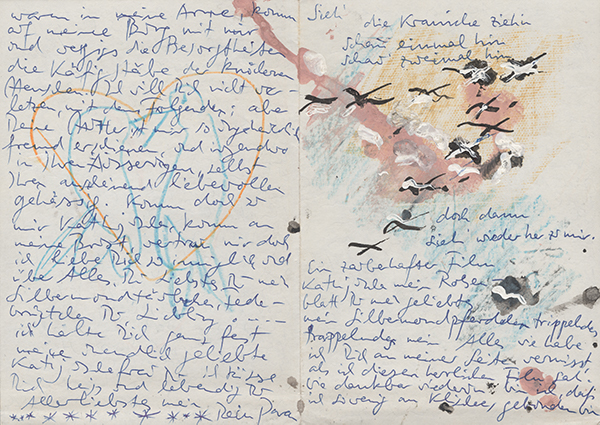 waren in meine Arme, komm
auf meine Burg mit mir
und vergiss die Besorgtheiten
die Käfigstäbe der knöchern
Menschen Ich will Dich nicht ver-
letzen, mit dem Folgenden; aber
Deine Mutter ist mir so
fremd erschienen, und irgendwo
in Ihren Äusserungen, selbst
Ihren anscheinend liebevollen
gehässig. Komm doch zu
mir Kati, oder komm an
meine Brust, vertrau mir doch
ich liebe Dich so und
über Alles. Du Liebste Du mein
Silbermond
Du Liebling - - -
ich halte Dich ganz fest
meine unendlich geliebte
Kati, Du ich küsse
Dich leis und lebendig Du
Allerliebstes mein Dein
Sieh' die Kraniche ziehn
schau einmal hin
schau zweimal hin
doch dann
sieh wieder her zu mir.
Ein zauberhafter Film
Kati, oder mein Rosen-
blatt Du mein geliebtes
mein Silbermondpferdchen trippelndes
trappelndes mein Alles wie habe
ich Dich an meiner Seite vermisst
als ich diesen herrlichen Film sah
wie dankbar wiederum bin ich, daß
ich so wenig an gebunden bin